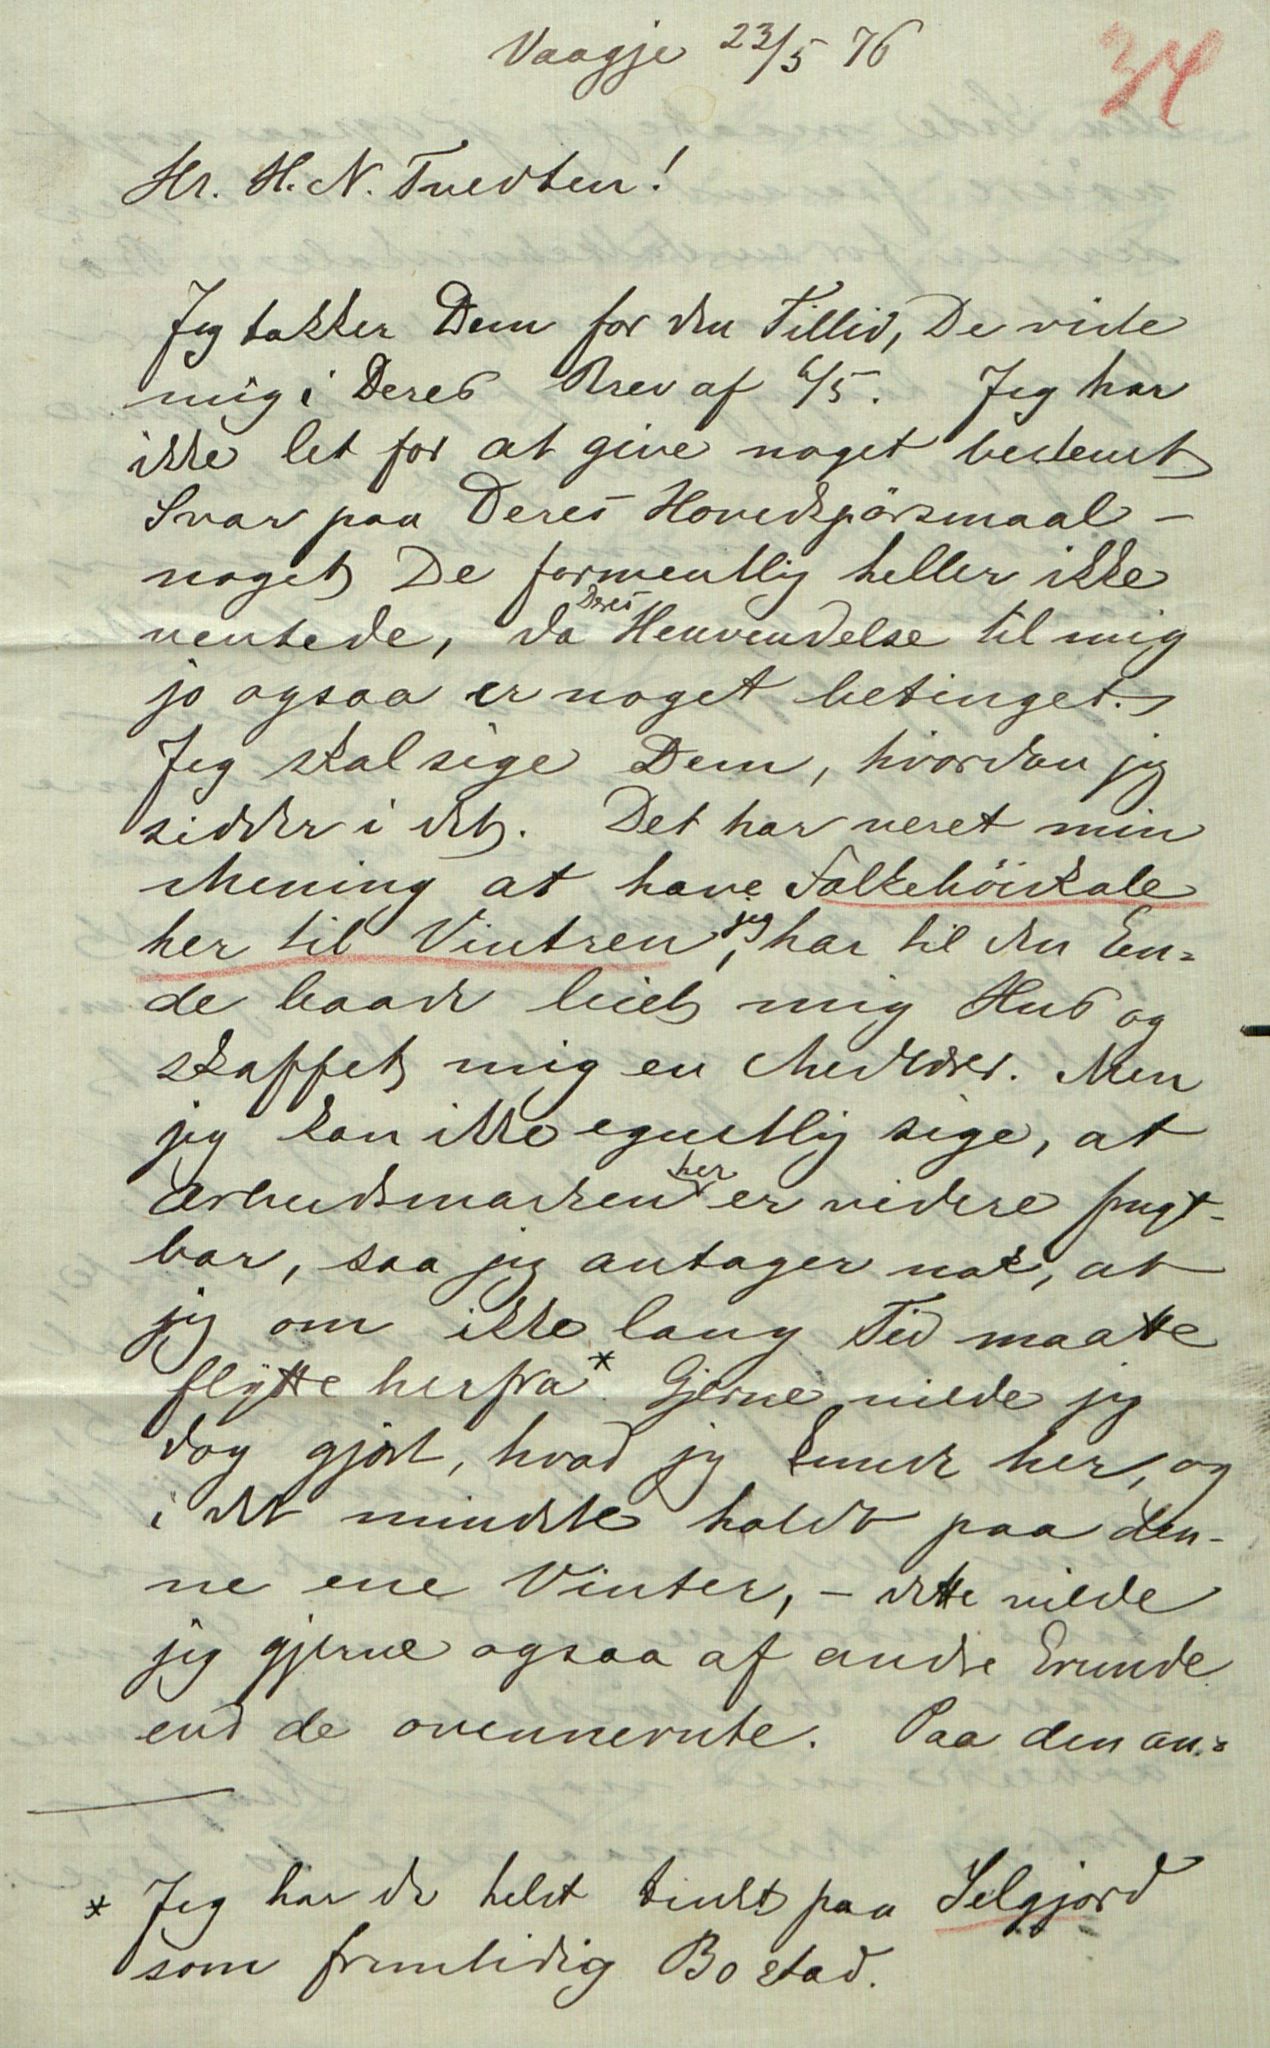 Vaagje 23/5 76
34
Hr. H. N. Tvedten!
Jeg takker Dem for den Tillid, De vide
mig i Deres Brev af 6/5. Jeg har
ikke let for at give noget bestemt
Svar paa Deres Hovedspörsmaal –
noget De formentlig heller ikke
ventede, da Deres Henvendelse til mig
jo ogsaa er noget betinget.
Jeg skal sige Dem, hvordan jeg
sidder i det. Det har veret min
Mening at have Folkehöiskole
her til Vintren, jeg har til den En=
de baade leiet mig Hus og
skaffet mig en Medlerer. Men
jeg kan ikke egentlig sige, at
Arbeidsmarken her er videre frugt-
bar, saa jeg antager nok, at
jeg om ikke lang Tid maatte
flytte herfra*. Gjerne vilde jeg
dog gjort, hvad jeg kunde her, og
i det mindste holdt paa den-
ne ene Vinter, – dette vilde
jeg gjerne ogsaa af andre Grunde
end de ovennevnte. Paa den an=
* Jeg har da helst tenkt paa Selgjord
som fremtidig Bostad.